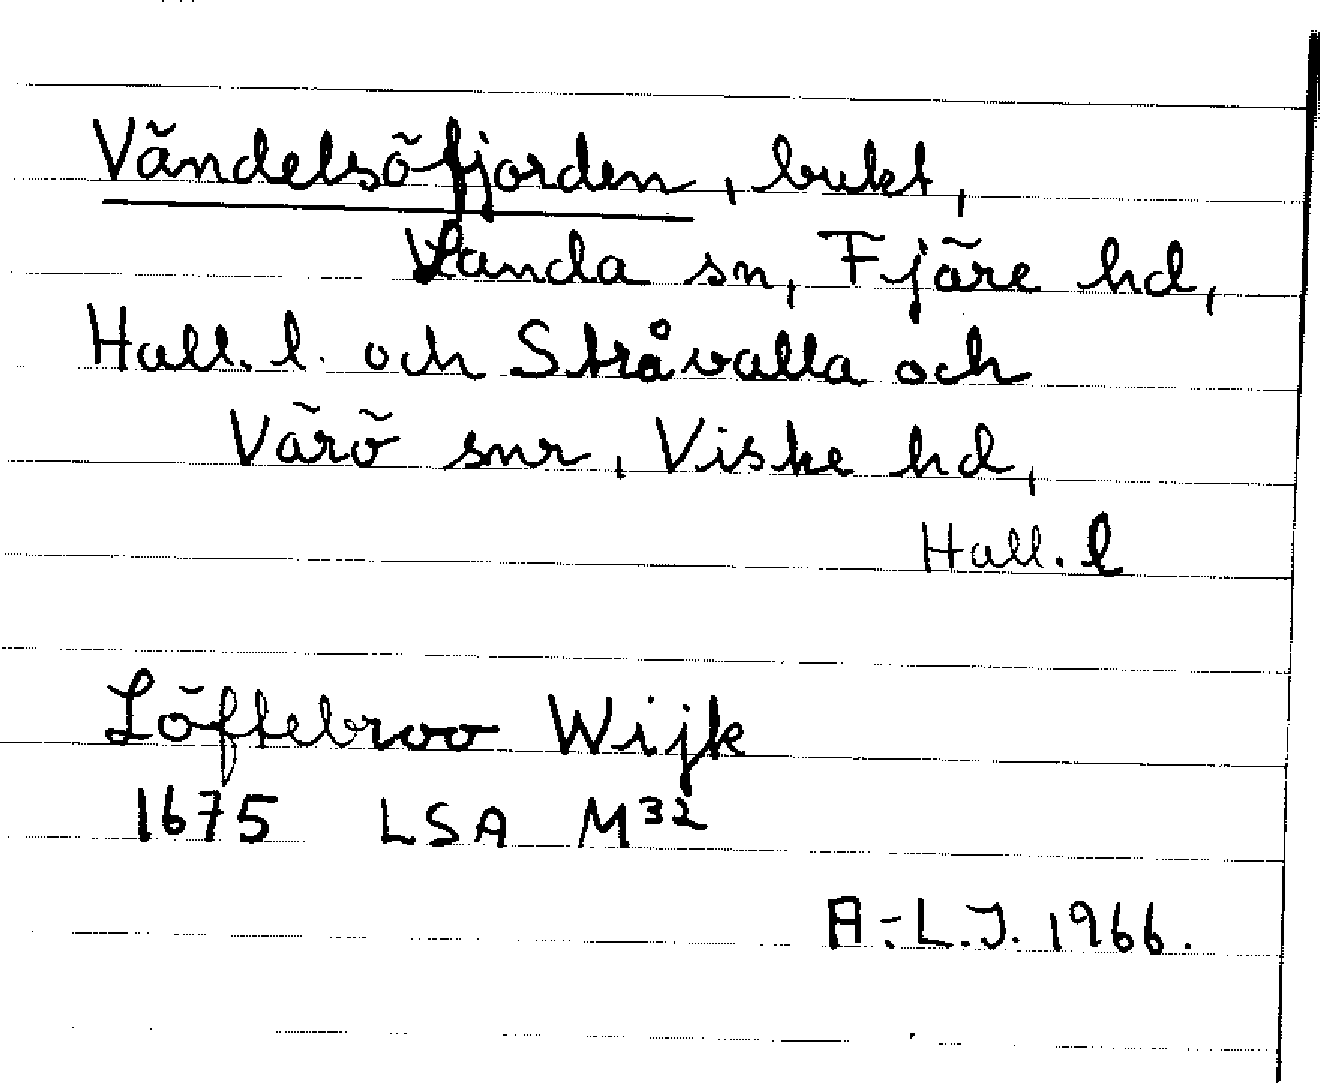 Vändelsöfjorden, bukt,
Landa sn, Fjäre hd,
Hall. l. och Stråvalla och
Värö snr, Viske hd,
Hall. l
Löftebroo Wijk
1675 LSA M³²
A.-L.J. 1966.